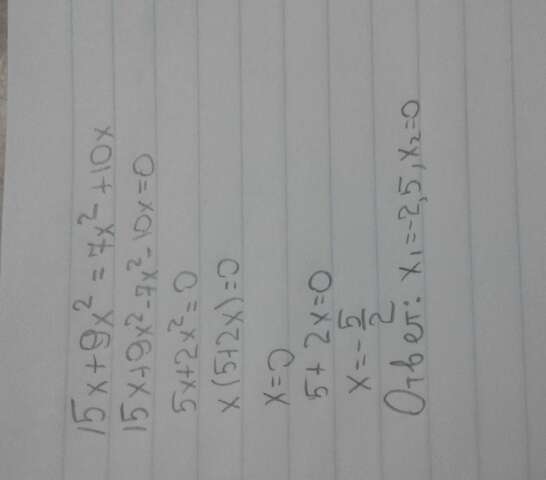 15x+9x²=7x²+10x
15x+9x²-7x²-10x=0
5x+2x²=0
x(5+2x)=0
x=0
5+2x=0
x=-5/2
Ответ: x₁=-2,5, x₂=0